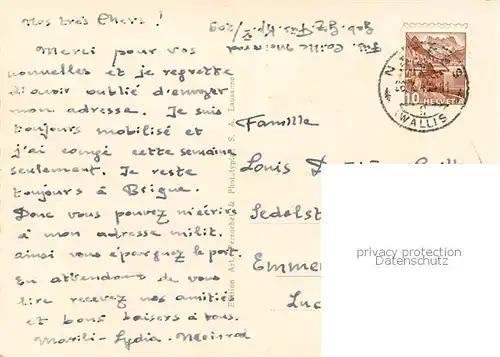 Nos très Chers !
Merci pour vos
nouvelles et je regrette
d'avoir oublié d'envoyer
mon adresse. Je suis
toujours mobilisé et
j'ai congé cette semaine
seulement. Je reste
toujours à Brigue.
Donc vous pouvez m'écrire
à mon adresse milit.
ainsi vous épargnez le port.
En attendant de vous
lire recevez nos amitiés
et bons baisers à tous.
Marili-Lydia-Meinrad
Füs. Caille Meinrad
Geb. Gz. Füs. Kp. V/209
Edition Art. Perrochet & Phototypie S. A. Lausanne
10 HELVETIA
(WALLIS)
Famille
Louis
Sedelst
Emme
Luc
privacy protection
Datenschutz